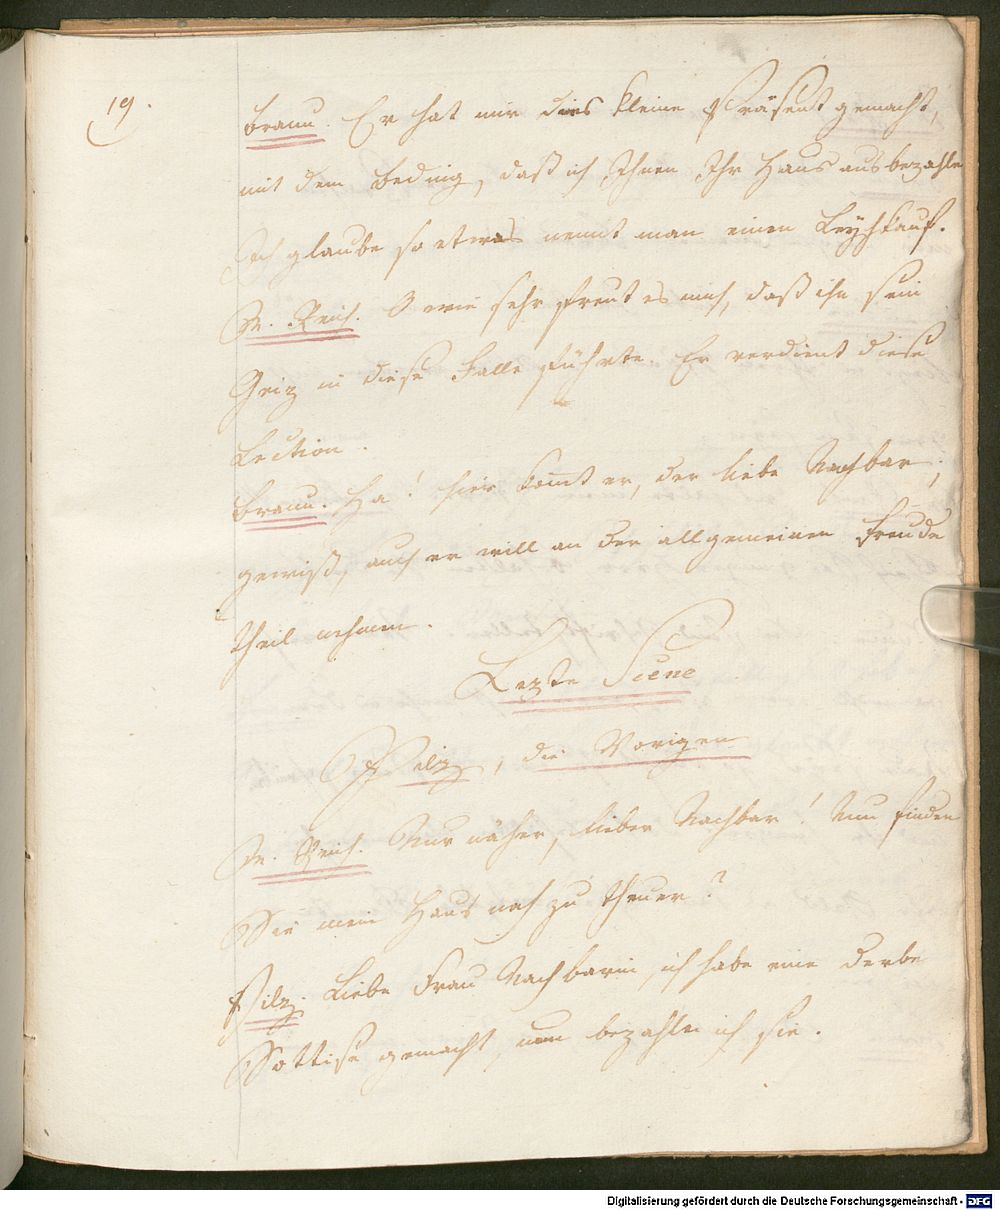 19.
Braun. Er hat mir dies kleine Präsent gemacht,
mit dem Beding, daß ich Ihnen Ihr Haus ausbezahle
Ich glaube so etwas nennt man einen Leyhkauf.
Fr. Reich. O wie sehr freut es mich, daß ihn sein
Geiz in diese Falle führte. Er verdient diese
Lection.
Braun. Ha! hier kommt er, der liebe Nachbar,
gewiß, auch er will an der allgemeinen Freude
theil nehmen.
Lezte Scene
Pilz, die Vorigen
Fr. Reich. Nur näher, lieber Nachbar! Nun finden
Sie mein Haus noch zu theuer?
Pilz. Liebe Frau Nachbarin, ich habe eine derbe
Sottise gemacht, nun bezahle ich sie.
Digitalisierung gefördert durch die Deutsche Forschungsgemeinschaft - DFG